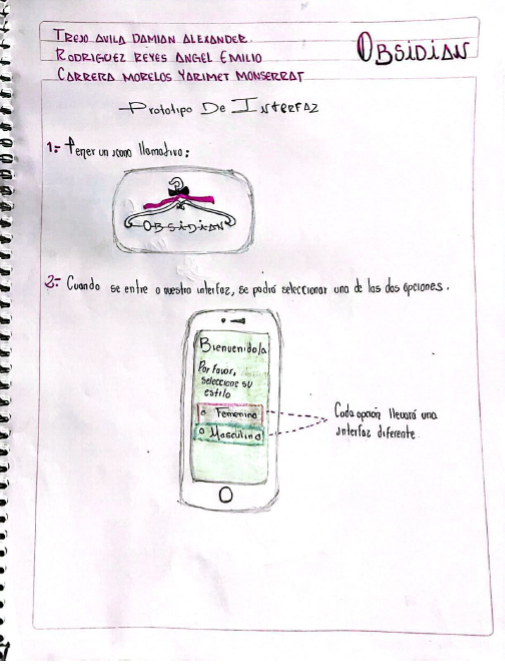 TREJO AVILA DAMIAN ALEXANDER.
RODRIGUEZ REYES ANGEL EMILIO
CARRERA MORELOS YARIMET MONSERRAT
OBSIDIAN
Prototipo De Interfaz
1.- Tener un icono llamativo:
OBSIDIAN
2.- Cuando se entre a nuestra interfaz, se podrá seleccionar una de las dos opciones.
Bienvenido/a
Por favor,
seleccione su
estilo
o Femenino
o Masculino
Cada opción llevará una
interfaz diferente.